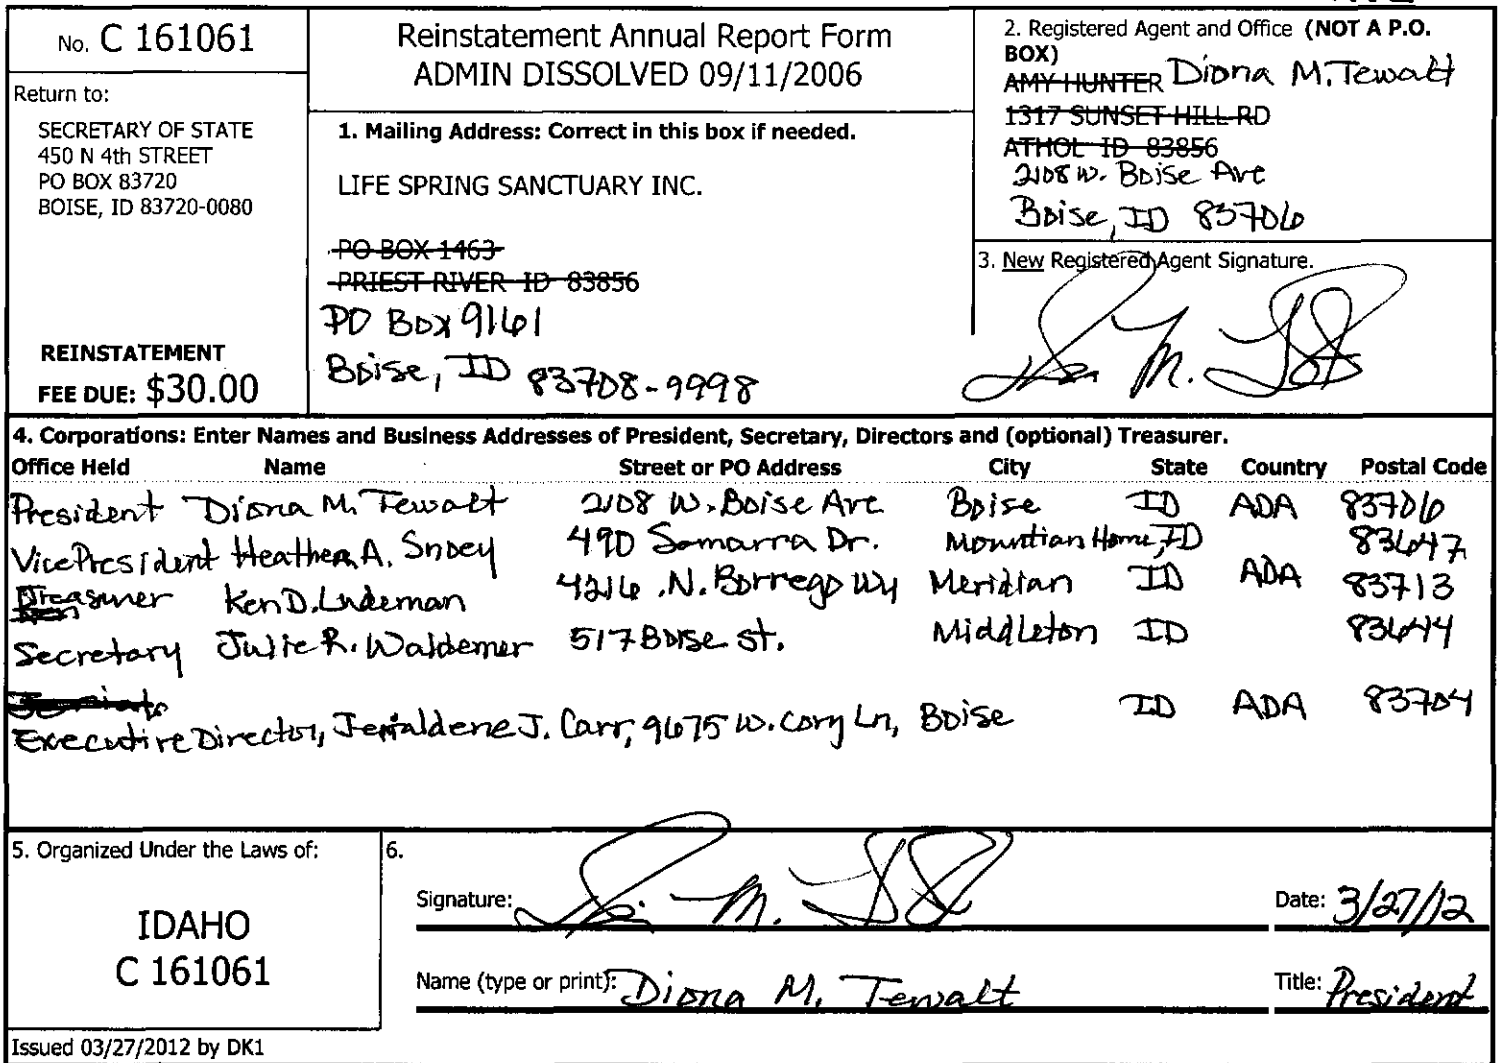 No. C 161061
Return to:
SECRETARY OF STATE
450 N 4th STREET
PO BOX 83720
BOISE, ID 83720-0080
REINSTATEMENT
FEE DUE: $30.00
Reinstatement Annual Report Form
ADMIN DISSOLVED 09/11/2006
1. Mailing Address: Correct in this box if needed.
LIFE SPRING SANCTUARY INC.
PO BOX 1463
PRIEST RIVER ID 83856
PO Box 9161
Boise, ID 83708-9998
2. Registered Agent and Office (NOT A P.O.
BOX)
AMY HUNTER Diona M. Tewalt
1317 SUNSET HILL RD
ATHOL ID 83856
2108 W. Boise Ave
Boise, ID 83706
3. New Registered Agent Signature.
4. Corporations: Enter Names and Business Addresses of President, Secretary, Directors and (optional) Treasurer.
Office Held Name Street or PO Address City State Country Postal Code
President Diona M. Tewalt 2108 W. Boise Ave Boise ID ADA 83706
Vice President Heather A. Snoey 490 Samarra Dr. Mountian Home, ID 83647
Treasurer Ken D. Lindeman 4216 .N. Borrego Wy Meridian ID ADA 83713
Secretary Julie R. Waldemer 517 Boise St. Middleton ID 83644
Executive Director, J. Carr, 9675 W. Cory Ln, Boise ID ADA 83704
5. Organized Under the Laws of:
IDAHO
C 161061
6.
Signature:
Date: 3/27/12
Name (type or print): Diona M. Tewalt
Title: President
Issued 03/27/2012 by DK1